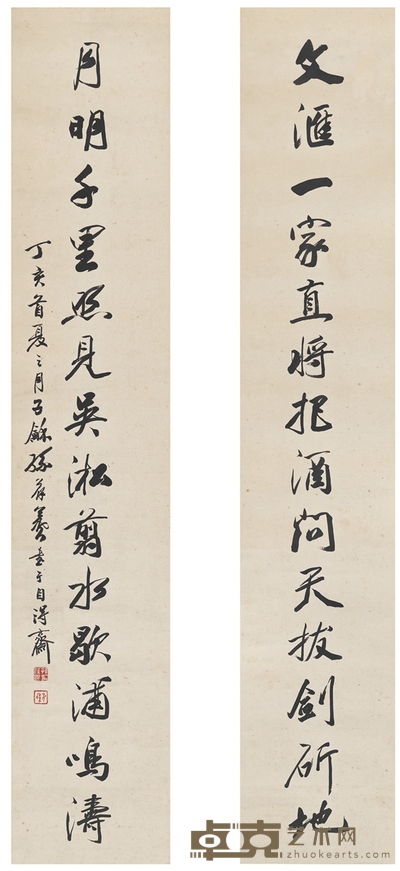 文滙一家直將把酒問天拔劍斫地
月明千里照見吳淞翦水歇浦鳴濤
丁亥首夏之月子書于自得齋
卓克艺术网
zhuokearts.com